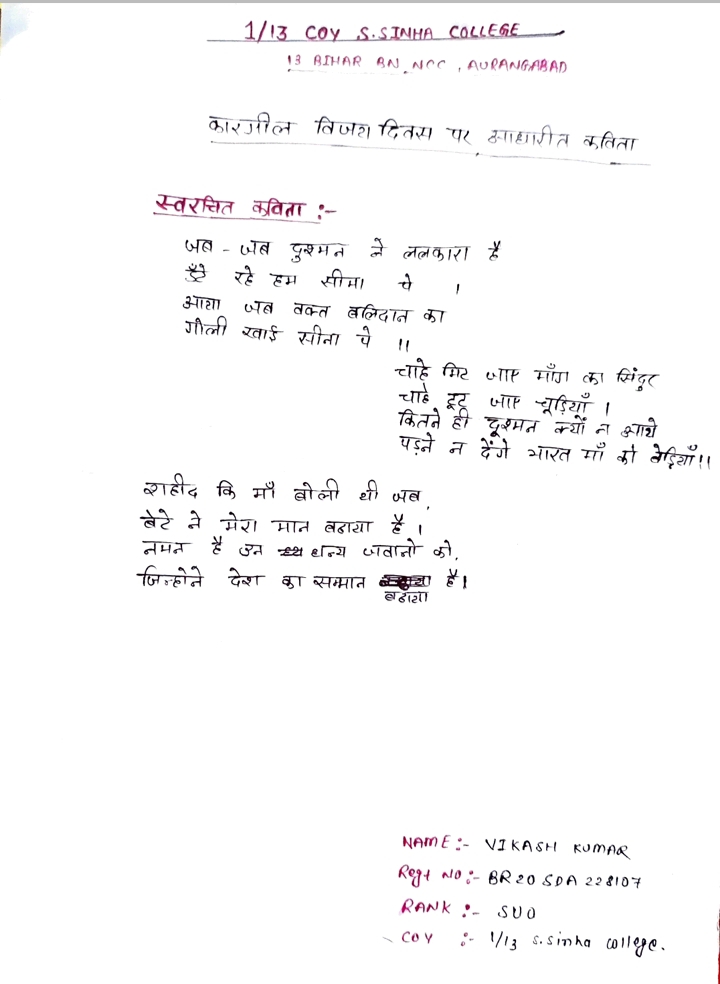 1/13 COY S.SINHA COLLEGE
13 BIHAR BN NCC, AURANGABAD
कारगील विजय दिवस पर आधारीत कविता
स्वरचित कविता :-
जब - जब दुश्मन ने ललकारा है
रहे हम सीमा पे ।
आया जब वक्त बलिदान का
गोली खाई सीना पे ॥
चाहे मिट जाए माँग का सिंदुर
चाहे टूट जाए चूड़ियाँ ।
कितने ही दूश्मन क्यों न आये
पड़ने न देंगे भारत माँ को बेड़ियाँ॥
शहीद कि माँ बोली थी जब,
बेटे ने मेरा मान बढाया है ।
नमन है उन धन्य जवानो को,
जिन्होने देश का सम्मान बढाया है।
NAME :- VIKASH KUMAR
Regt NO :- BR 20 SDA 228107
RANK :- SUO
COY :- 1/13 S.Sinha college.